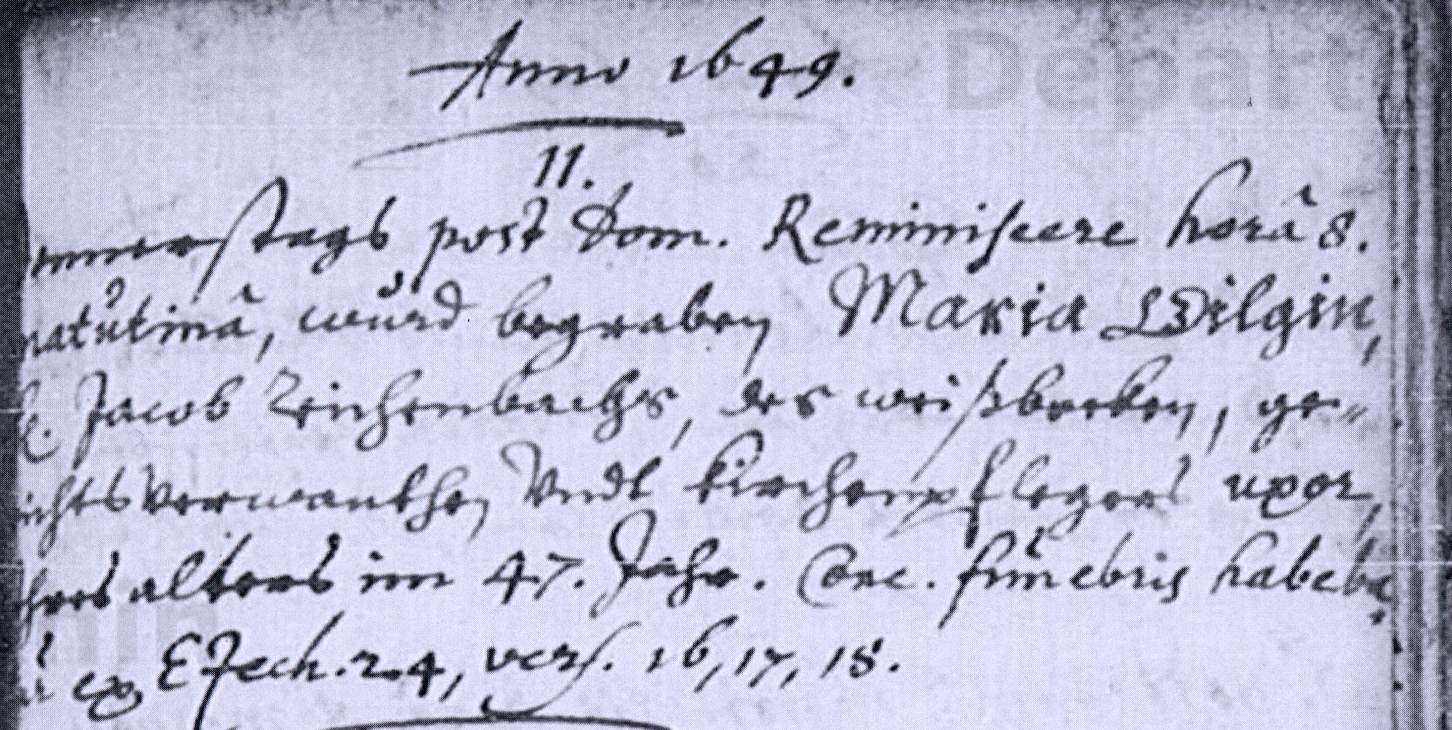 Anno 1649.
11.
nnerstags post Dom. Reminiscere horâ 8.
matutinâ, würd begraben Maria Wilgin,
Jacob Reichenbachs, des weißbecken, ge-
ichtsverwanthen Vndt kirchenpflegers uxor,
hres alters im 47. Jahr. Conc. funebris habeba
ex Ezech. 24, vers. 16, 17, 18.